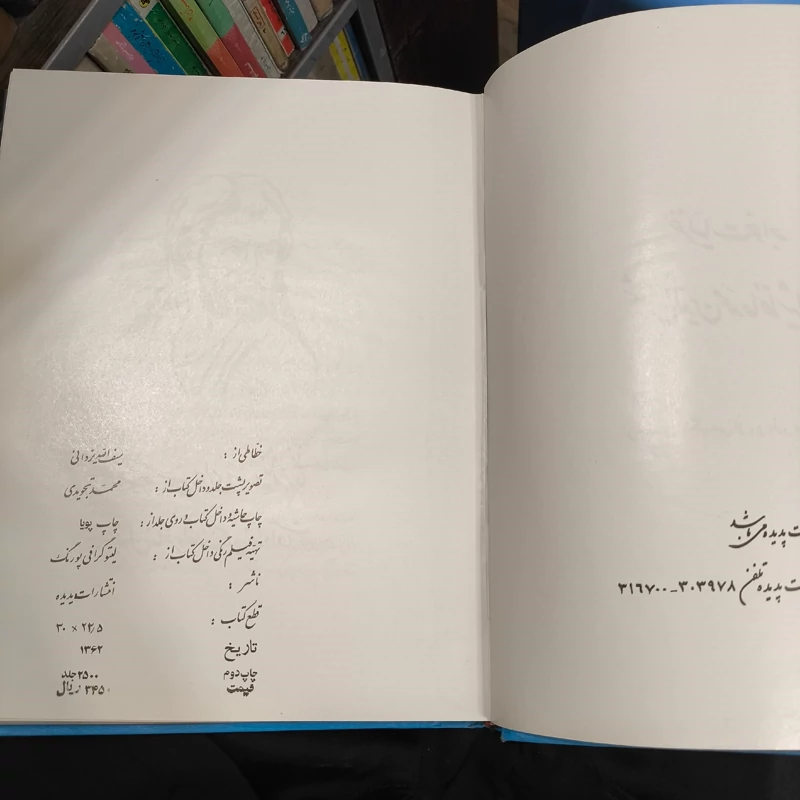 خطاطی از : سیف‌الله یزدانی
تصویر پشت جلد و داخل کتاب از : محمد تجویدی
چاپ حاشیه و داخل کتاب و روی جلد از : چاپ پویا
تهیه فیلم رنگی داخل کتاب از : لیتوگرافی پورنگ
ناشر : انتشارات پدیده
قطع کتاب : ۲۲٫۵ × ۳۰
تاریخ ۱۳۶۲
چاپ دوم ۲۵۰۰ جلد
قیمت ۳۴۵۰ ریال
ت پدیده می باشد
ت پدیده تلفن ۳۰۳۹۷۸-۳۱۶۷۰۰